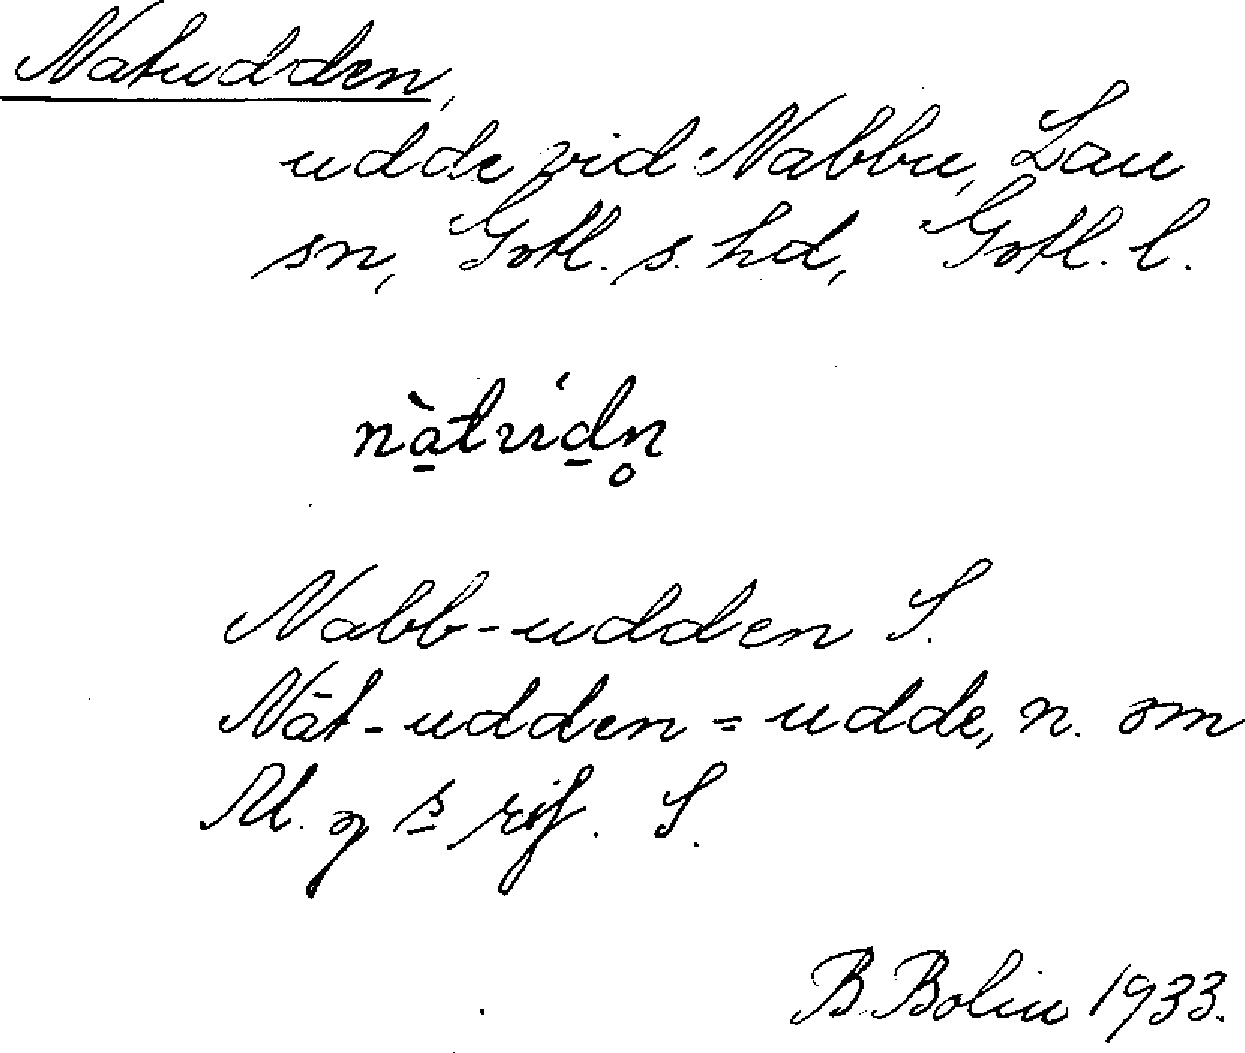 Natudden,
udde vid Nabbu, Lau
sn, Gotl. s. hd, Gotl. l.
Nabb-udden S.
Nāt-udden = udde, n. om
S.
B. Bolin 1933.